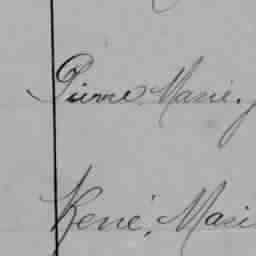 Pierre Marie,
René, Mari